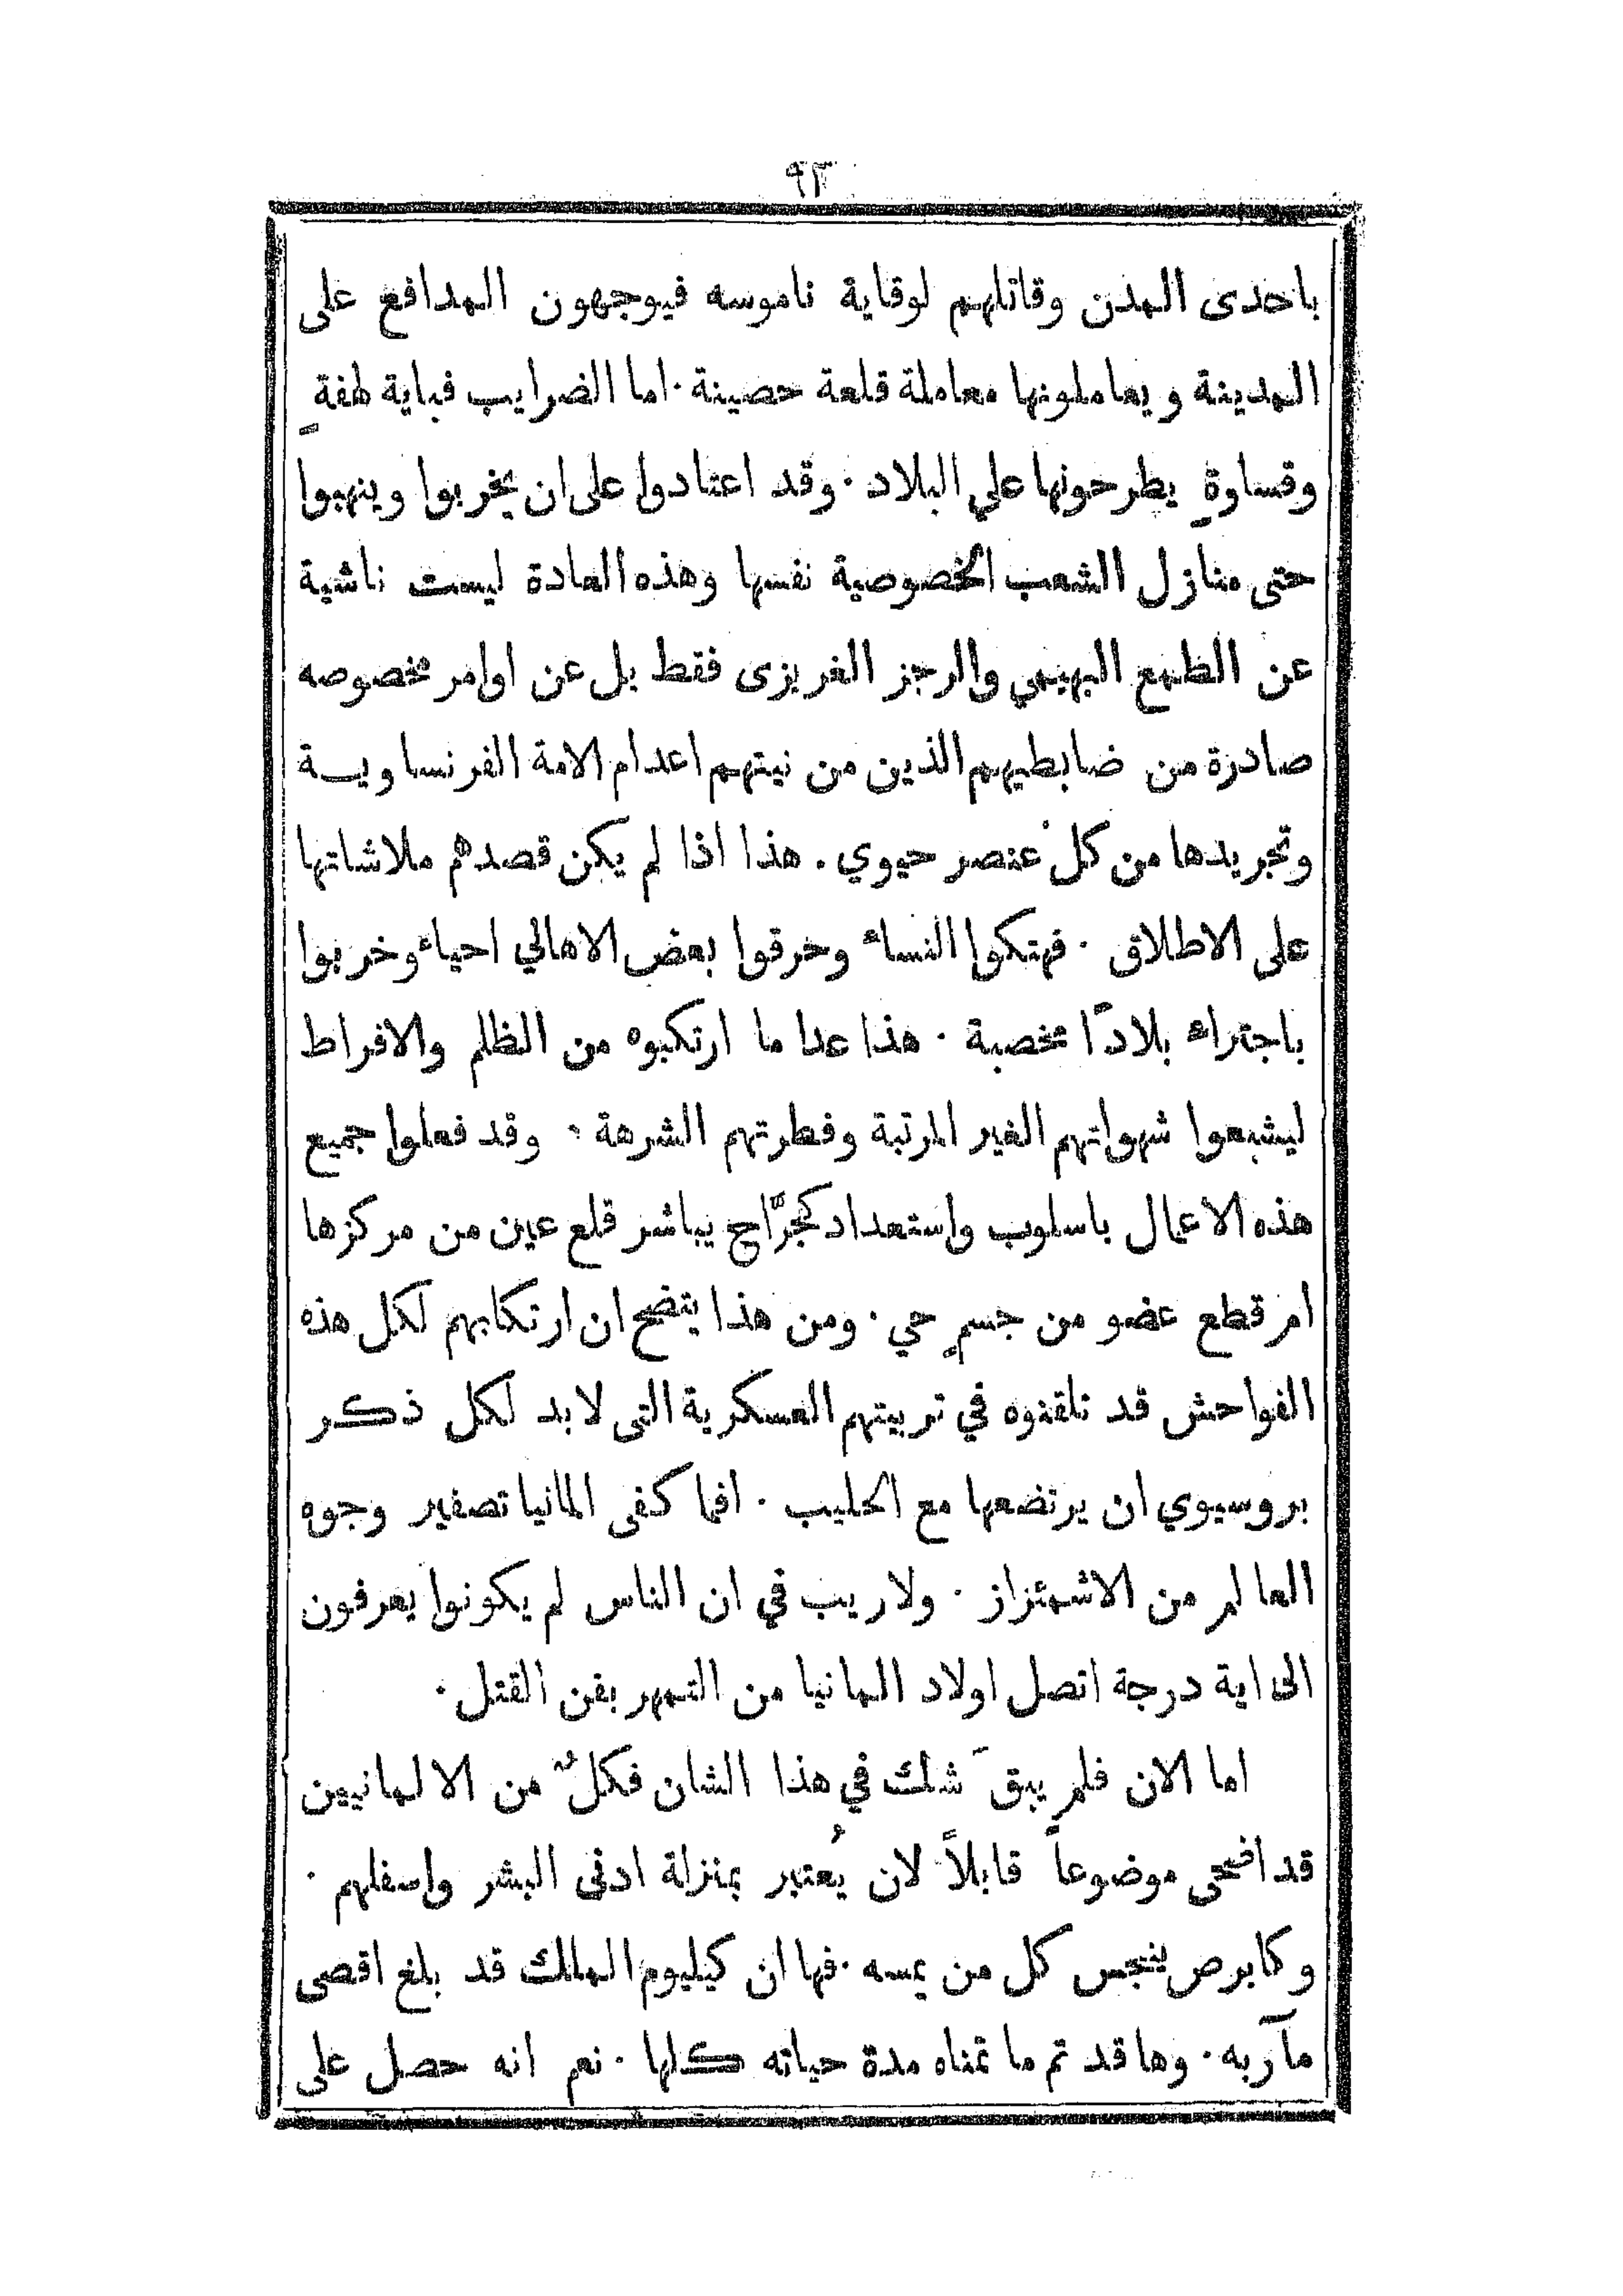 ٩٣
باحدى المدن وقاتلهم لوقاية ناموسه فيوجهون المدافع على
المدينة ويعاملونها معاملة قلعة حصينة · اما الضرايب فباية لهفةٍ
وقساوةٍ يطرحونها علي البلاد · وقد اعتادوا على ان يخربوا وينهبوا
حتى منازل الشعب الخصوصية نفسها وهذه العادة ليست ناشية
عن الطمع البهيمي والرجز الغريزى فقط بل عن اوامر مخصوصه
صادرة من ضابطيهم الذين من نيتهم اعدام الامة الفرنساوية
وتجريدها من كل عنصر حيوي . هذا اذا لم يكن قصدهم ملاشاتها
على الاطلاق · فهتكوا النساء وحرقوا بعض الاهالي احياء وخربوا
باجتراء بلادًا مخصبة · هذا عدا ما ارتكبوه من الظلم والافراط
ليشبعوا شهواتهم الغير المرتبة وفطرتهم الشرهة · وقد فعلوا جميع
هذه الاعمال باسلوب واستعداد كجرَّاح يباشر قلع عين من مركزها
ام قطع عضو من جسمٍ حي · ومن هذا يتضح ان ارتكابهم لكل هذه
الفواحش قد تلقنوه في تربيتهم العسكرية التى لا بد لكل ذكر
بروسيوي ان يرتضعها مع الحليب · افما كفى المانيا تصفير وجوه
العالم من الاشمئزاز · ولا ريب في ان الناس لم يكونوا يعرفون
الى اية درجة اتصل اولاد المانيا من التمهر بفن القتل ·
اما الان فلم يبقَ شك في هذا الشان فكلٌ من الالمانيين
قد اضحى موضوعاً قابلاً لان يُعتبر بمنزلة ادنى البشر واسفلهم ·
وكابرص ينجس كل من يمسه · فها ان كيليوم الملك قد بلغ اقصى
مآربه · وها قد تم ما تمناه مدة حياته كلها · نعم انه حصل على